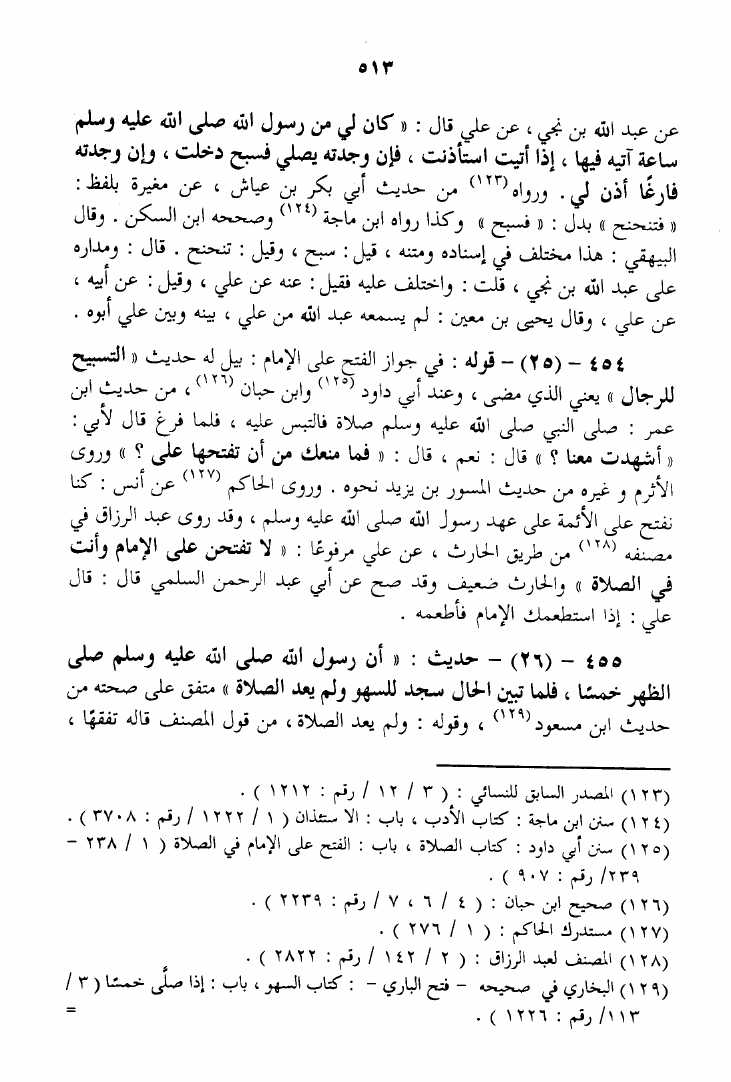 ٥١٣
عن عبد الله بن نجي ، عن علي قال : « كان لي من رسول الله صلى الله عليه وسلم
ساعة آتيه فيها ، إذا أتيت استأذنت ، فإن وجدته يصلي فسبح دخلت ، وإن وجدته
فارغًا أذن لي . ورواه (١٢٣) من حديث أبي بكر بن عياش ، عن مغيرة بلفظ :
« فتنحنح » بدل : « فسبح » وكذا رواه ابن ماجة (١٢٤) وصححه ابن السكن . وقال
البيهقي : هذا مختلف في إسناده ومتنه ، قيل : سبح ، وقيل : تنحنح . قال : ومداره
على عبد الله بن نجي ، قلت : واختلف عليه فقيل : عنه عن علي ، وقيل : عن أبيه ،
عن علي ، وقال يحيى بن معين : لم يسمعه عبد الله من علي ، بينه وبين علي أبوه .
٤٥٤ – (٢٥) – قوله : في جواز الفتح على الإمام : بيل له حديث « التسبيح
للرجال » يعني الذي مضى ، وعند أبي داود (١٢٥) وابن حبان (١٢٦) ، من حديث ابن
عمر : صلى النبي صلى الله عليه وسلم صلاة فالتبس عليه ، فلما فرغ قال لأبي :
« أشهدت معنا ؟ » قال : نعم ، قال : « فما منعك من أن تفتحها على ؟ » وروى
الأثرم و غيره من حديث المسور بن يزيد نحوه . وروى الحاكم (١٢٧) عن أنس : كنا
نفتح على الأئمة على عهد رسول الله صلى الله عليه وسلم ، وقد روى عبد الرزاق في
مصنفه (١٢٨) من طريق الحارث ، عن علي مرفوعًا : « لا تفتحن على الإمام وأنت
في الصلاة » والحارث ضعيف وقد صح عن أبي عبد الرحمن السلمي قال : قال
علي : إذا استطعمك الإمام فأطعمه .
٤٥٥ – (٢٦) – حديث : « أن رسول الله صلى الله عليه وسلم صلى
الظهر خمسًا ، فلما تبين الحال سجد للسهو ولم يعد الصلاة » متفق على صحته من
حديث ابن مسعود (١٢٩) ، وقوله : ولم يعد الصلاة ، من قول المصنف قاله تفقهًا ،
(١٢٣) المصدر السابق للنسائي : ( ٣ / ١٢ / رقم : ١٢١٢ ) .
(١٢٤) سنن ابن ماجة : كتاب الأدب ، باب : الا ستئذان ( ١ / ١٢٢٢ / رقم : ٣٧٠٨ ) .
(١٢٥) سنن أبي داود : كتاب الصلاة ، باب : الفتح على الإمام في الصلاة ( ١ / ٢٣٨ –
٢٣٩/ رقم : ٩٠٧ ) .
(١٢٦) صحيح ابن حبان : ( ٤ / ٦ ، ٧ / رقم : ٢٢٣٩ ) .
(١٢٧) مستدرك الحاكم : ( ١ / ٢٧٦ ) .
(١٢٨) المصنف لعبد الرزاق : ( ٢ / ١٤٢ / رقم : ٢٨٢٢ ) .
(١٢٩) البخاري في صحيحه – فتح الباري – : كتاب السهو ، باب : إذا صلَّى خمسًا ( ٣ /
١١٣/ رقم : ١٢٢٦ ) . =